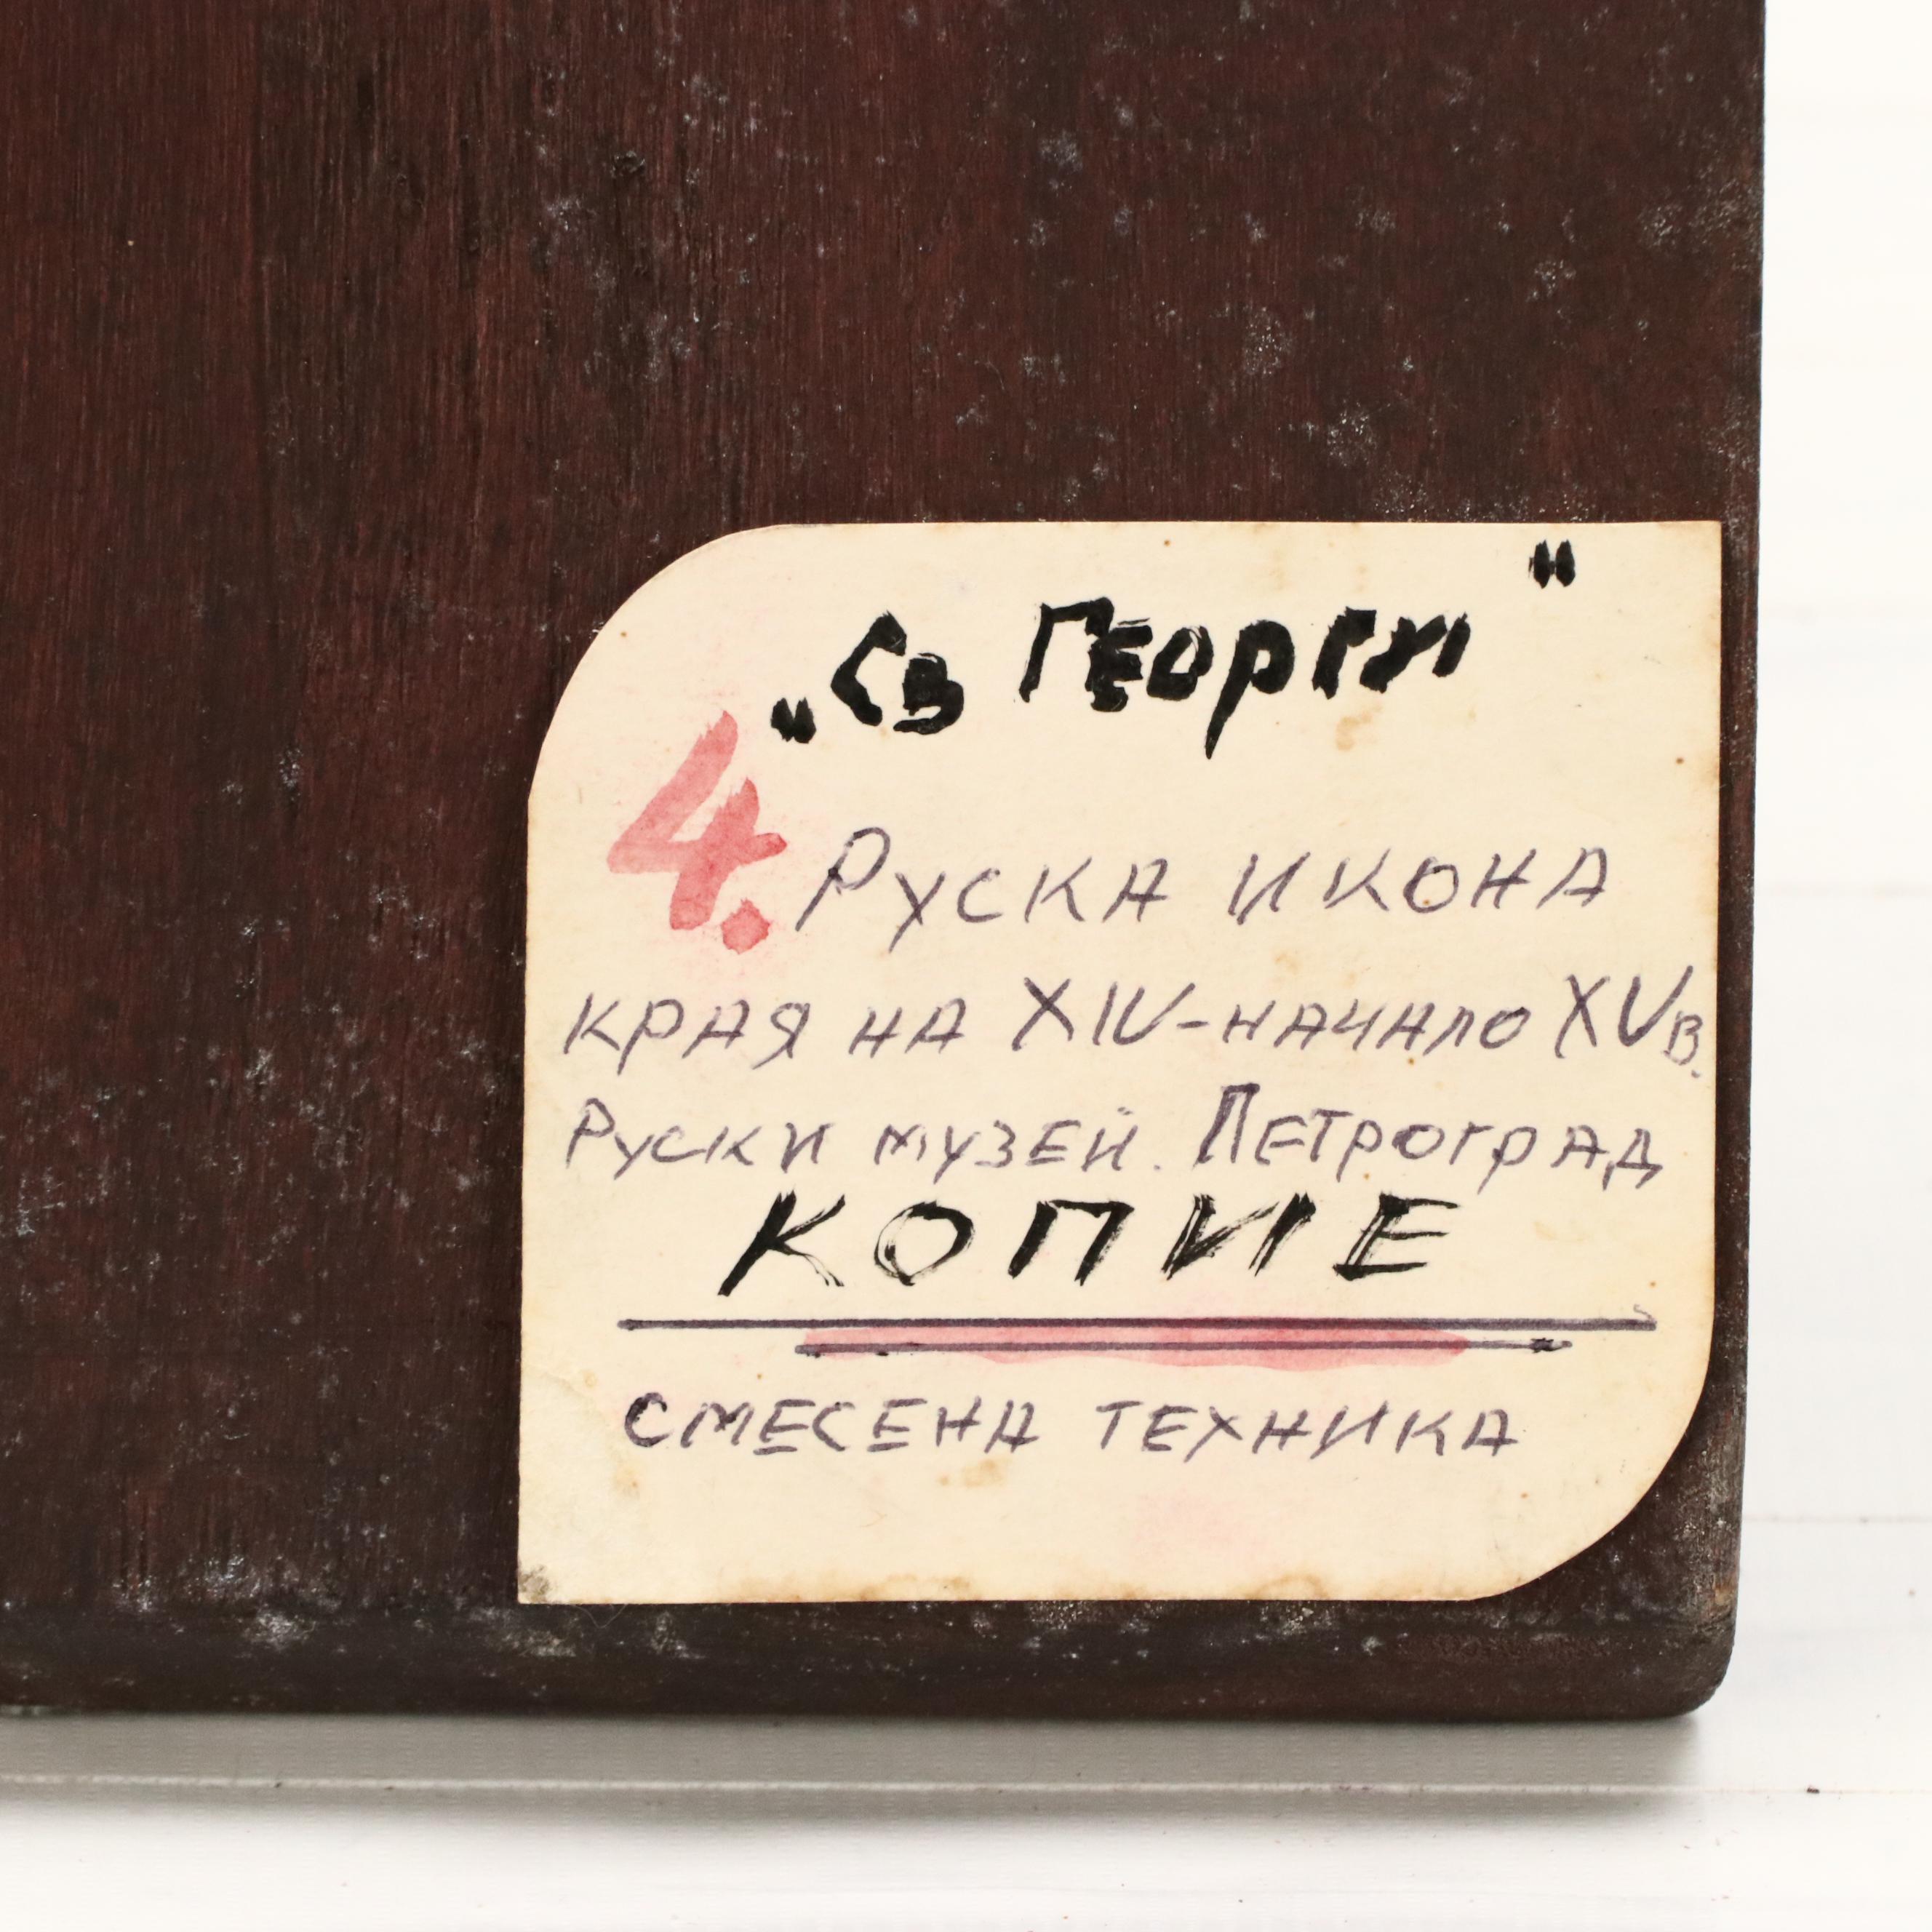 „Св Георги"
4. Руска икона
края на XIV-начало XVв.
Руски музей. Петроград
КОПИЕ
смесена техника